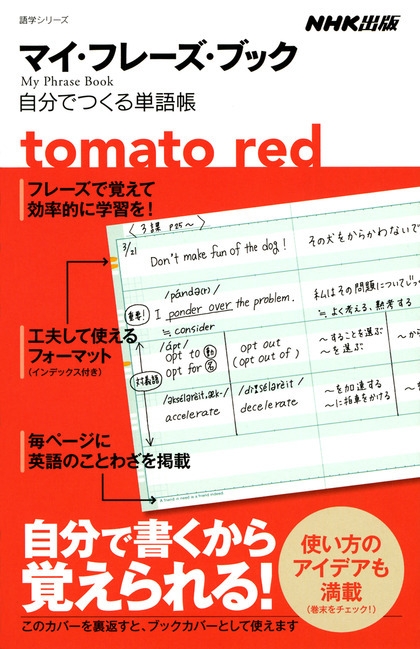 語学シリーズ
NHK出版
マイ・フレーズ・ブック
My Phrase Book
自分でつくる単語帳
tomato red
フレーズで覚えて
効率的に学習を!
工夫して使える
フォーマット
(インデックス付き)
毎ページに
英語のことわざを掲載
〈3課 P25〜〉
3/21
Don't make fun of the dog!
その犬をからかわないで
/pάndə(r)/
重要!
I ponder over the problem.
私はその問題について
≒ consider
≒ よく考える、熟考する
/άpt/
opt to 動
opt for 名
opt out
(opt out of)
〜することを選ぶ
〜を選ぶ
〜から
対義語
/əksélərèit, æk-/
accelerate
/dì:sélərèit/
decelerate
〜を加速する
〜に拍車をかける
〜を
A friend in need is a friend indeed.
自分で書くから
覚えられる!
使い方の
アイデアも
満載
(巻末をチェック!)
このカバーを裏返すと、ブックカバーとして使えます